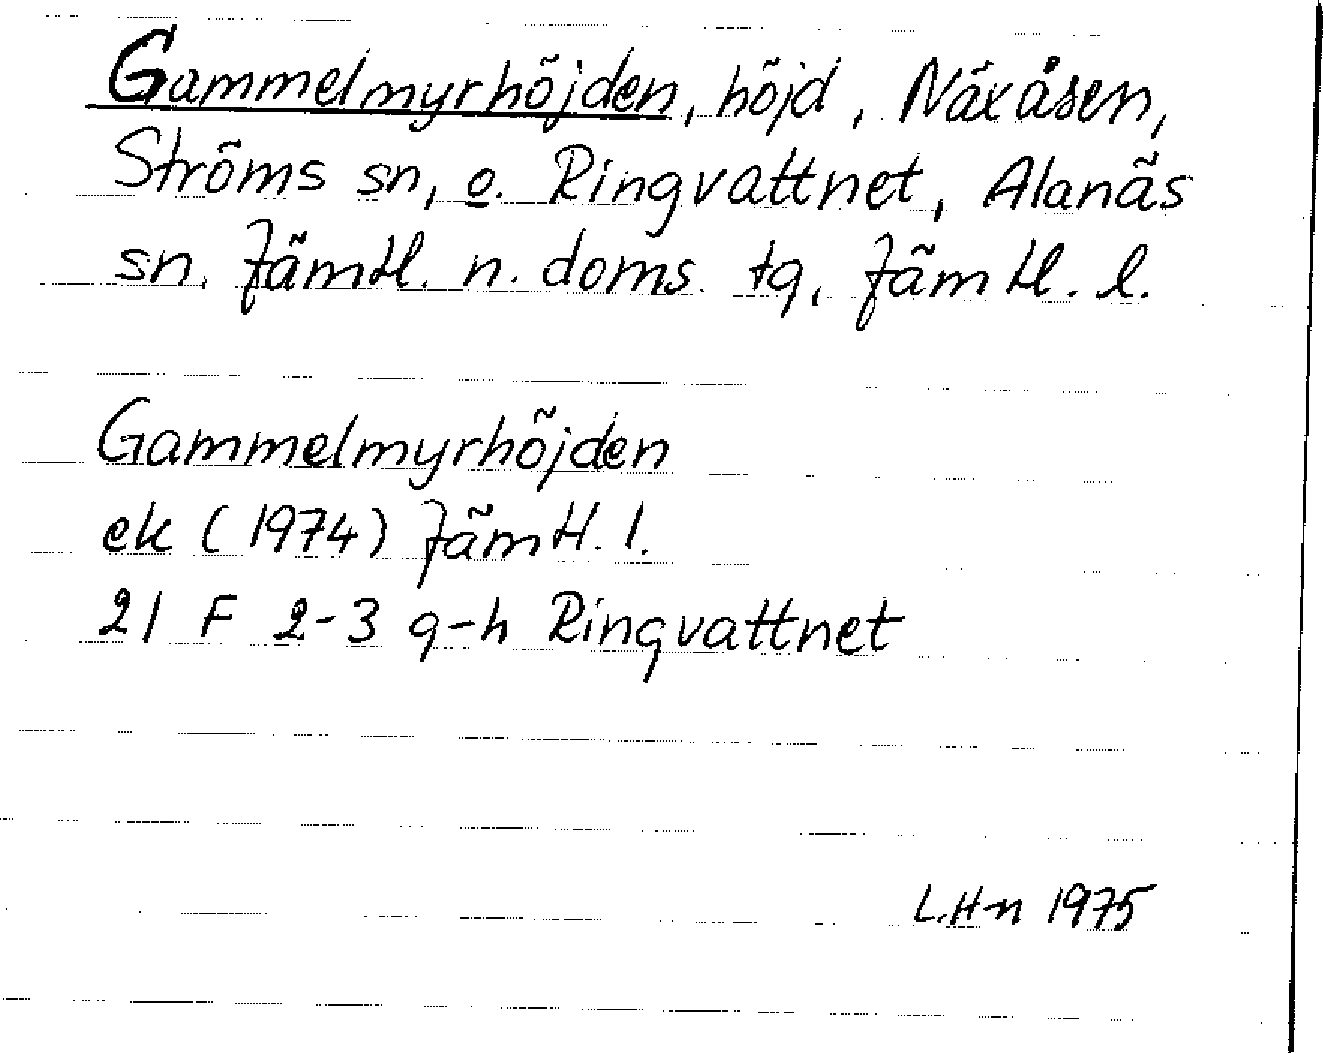 Gammelmyrhöjden, höjd, Näxåsen,
Ströms sn, o. Ringvattnet, Alanäs
sn. Jämtl. n. doms. tg, Jämtl. l.
Gammelmyrhöjden
ek (1974) Jämtl. l.
21 F 2-3 g-h Ringvattnet
L.H-n 1975